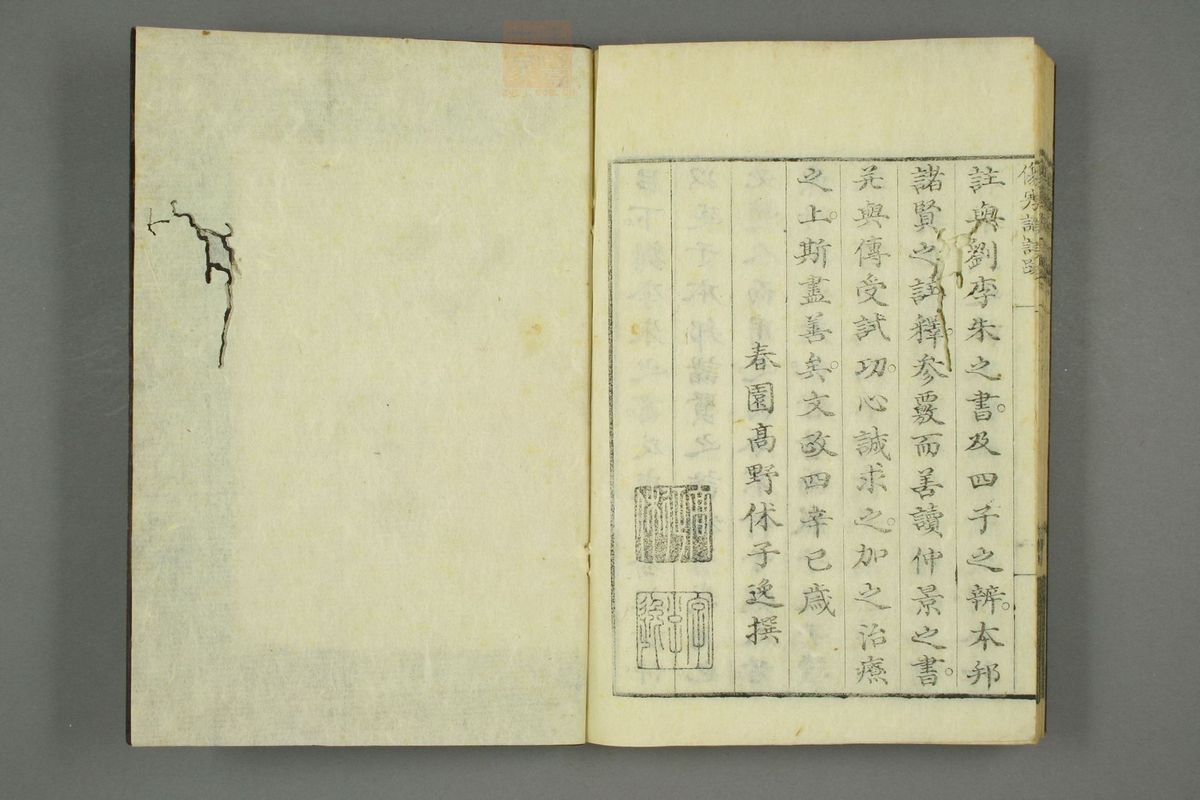 註與劉李朱之書。及四子之辨。本邦
諸賢之註釋。參覈而善讀仲景之書。
并與傳受試功。心誠求之。加之治療
之上。斯盡善矣。文政四辛巳歲
春園高野休子逸撰
字子逸